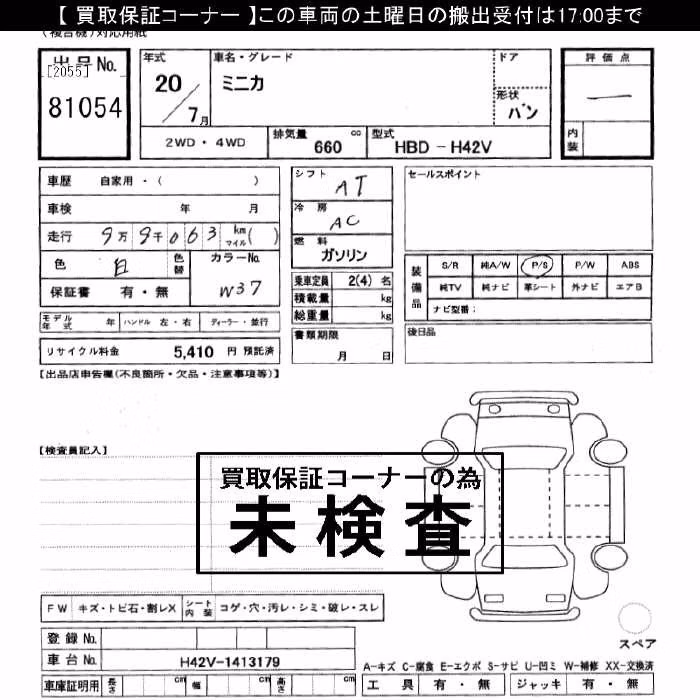 【 買取保証コーナー 】この車両の土曜日の搬出受付は17:00まで
(複合機)対応用紙
出品No.
[2055]
81054
年式
20/7月
車名・グレード
ミニカ
ドア
形状
バン
評価点
一
内装
2WD・4WD
排気量 cc
660
型式
HBD-H42V
車歴 自家用・( )
車検 年 月
走行 9万9千063 km マイル( )
色 白 色替
カラーNo.
W37
保証書 有・無
シフト
AT
冷房
AC
燃料
ガソリン
乗車定員 2(4) 名
積載量 kg
総重量 kg
書類期限
月 日
セールスポイント
装備品
S/R 純A/W P/S P/W ABS
純TV 純ナビ 革シート 外ナビ エアB
ナビ型番:
後日品
モデル年式 年 ハンドル 左・右 ディーラー・並行
リサイクル料金 5,410 円 預託済
【出品店申告欄(不良箇所・欠品・注意事項等)】
【検査員記入】
買取保証コーナーの為
未検査
FW キズ・トビ石・割レX シート内装 コゲ・穴・汚レ・シミ・破レ・スレ
スペア
登録No.
車台No. H42V-1413179
A-キズ C-腐食 E-エクボ S-サビ U-凹ミ W-補修 XX-交換済
車庫証明用 長さ cm 幅 cm 高さ cm
工具 有・無 ジャッキ 有・無